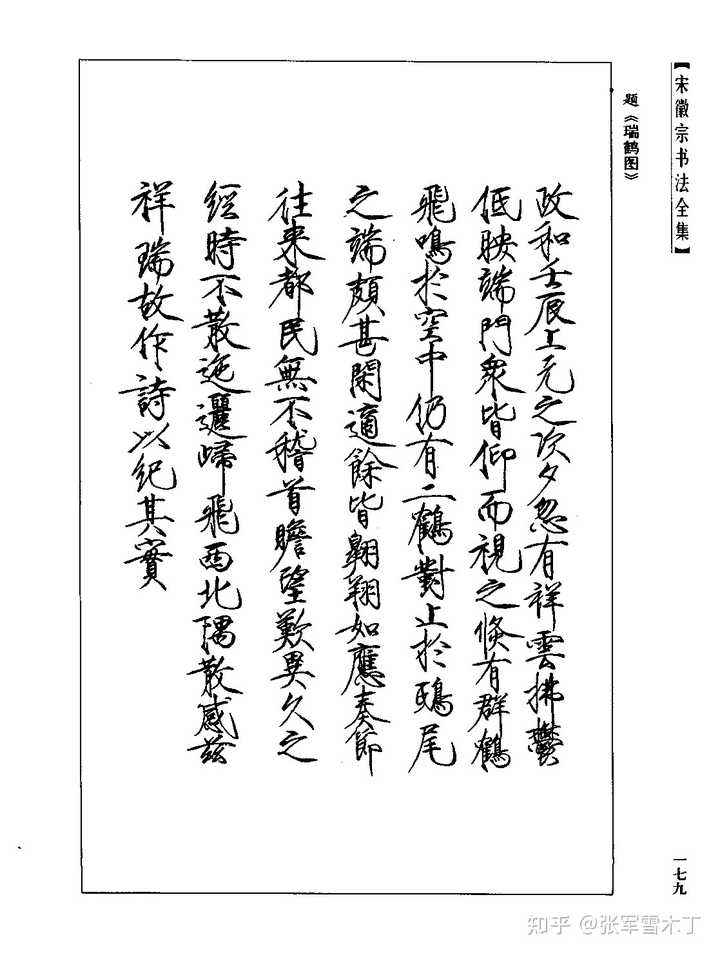 【宋徽宗书法全集】
题《瑞鹤图》
政和壬辰上元之次夕忽有祥雲拂鬱
低映端門衆皆仰而視之倏有群鶴
飛鳴於空中仍有二鶴對止於鴟尾
之端頗甚閑適餘皆翱翔如應奏節
往来都民無不稽首瞻望歎異久之
經時不散迤邐歸飛西北隅散感兹
祥瑞故作詩以紀其實
一七九
知乎 @张军雪木丁